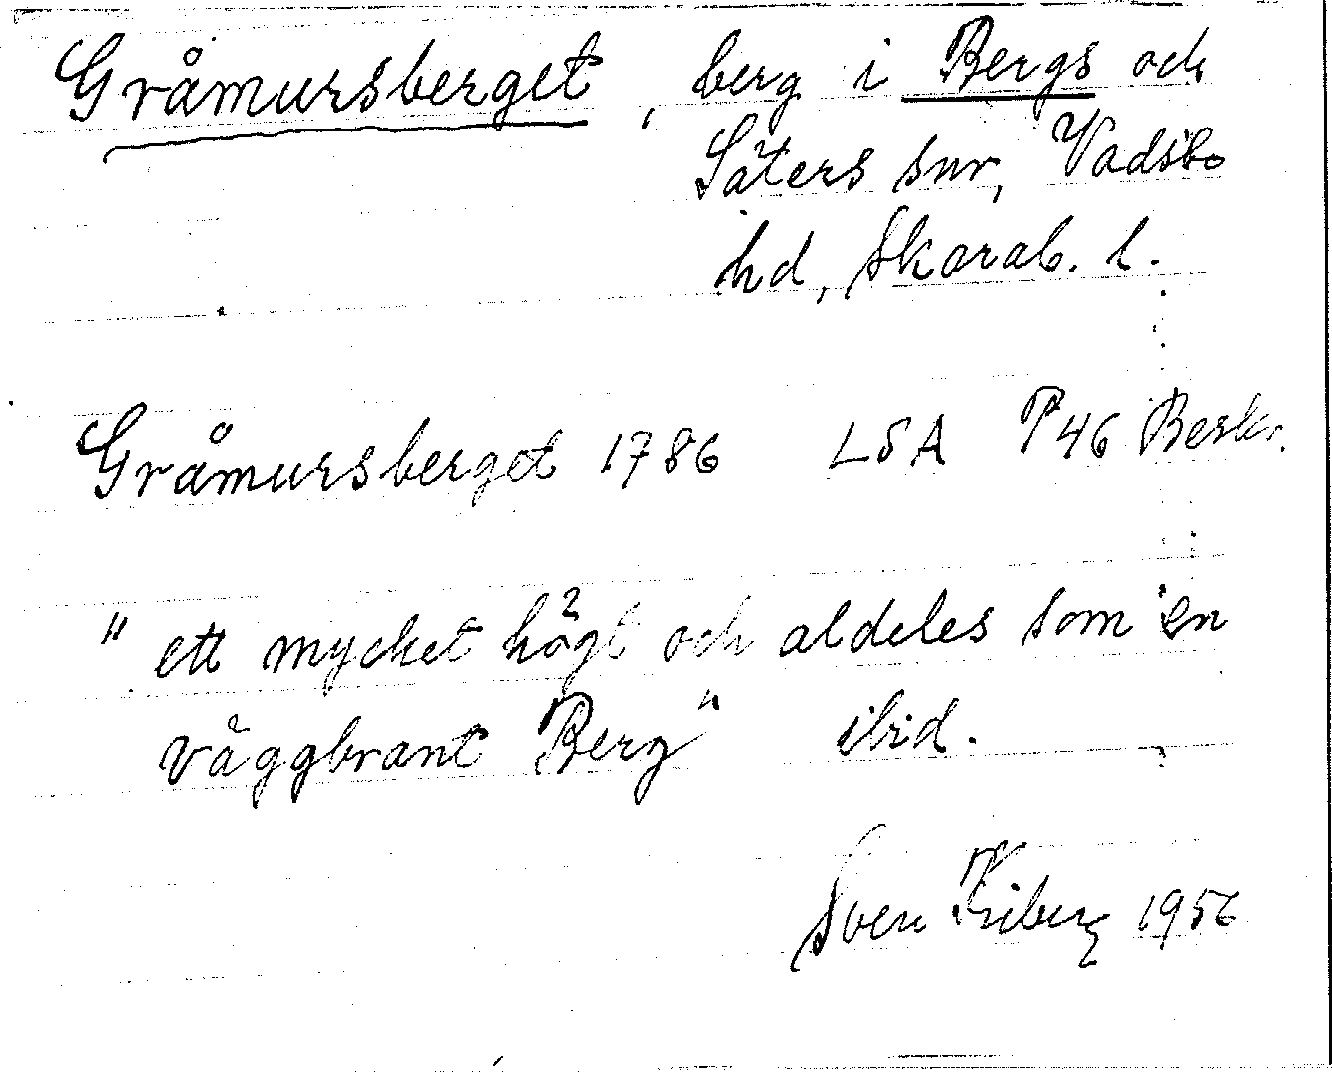 Gråmursberget, berg i Bergs och
Säters snr, Vadsbo
hd, Skarab. l.
Gråmursberget 1786 LSA P46 Beskr.
"ett mycket högt och aldeles som en
väggbrant Berg" ibid.
Sven Friberg 1956